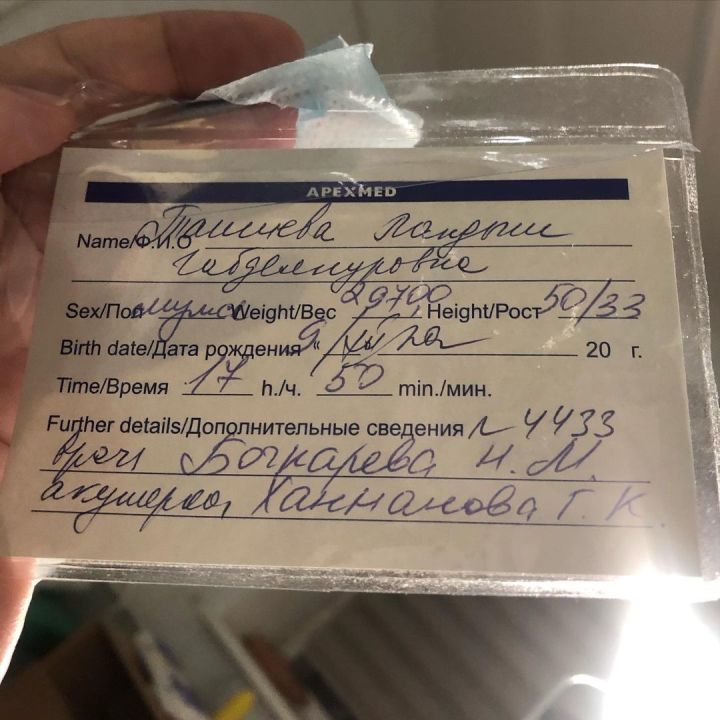 APEXMED
Name/Ф.И.О Ландыш
Габделнуровна
Sex/Пол Weight/Вес Height/Рост 50/33
Birth date/Дата рождения 9 " " 20 г.
Time/Время 17 h./ч. 50 min./мин.
Further details/Дополнительные сведения 4433
врач Н.М.
акушерка Ханнанова Г.К.